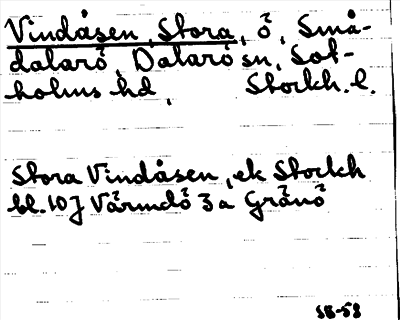 Vindåsen, Stora, ö, Små-
dalarö, Dalarö sn, Sot-
holms hd, Stockh. l.
Stora Vindåsen, ek Stockh
bl. 10 J Värmdö 3 a Gränö
SB-58